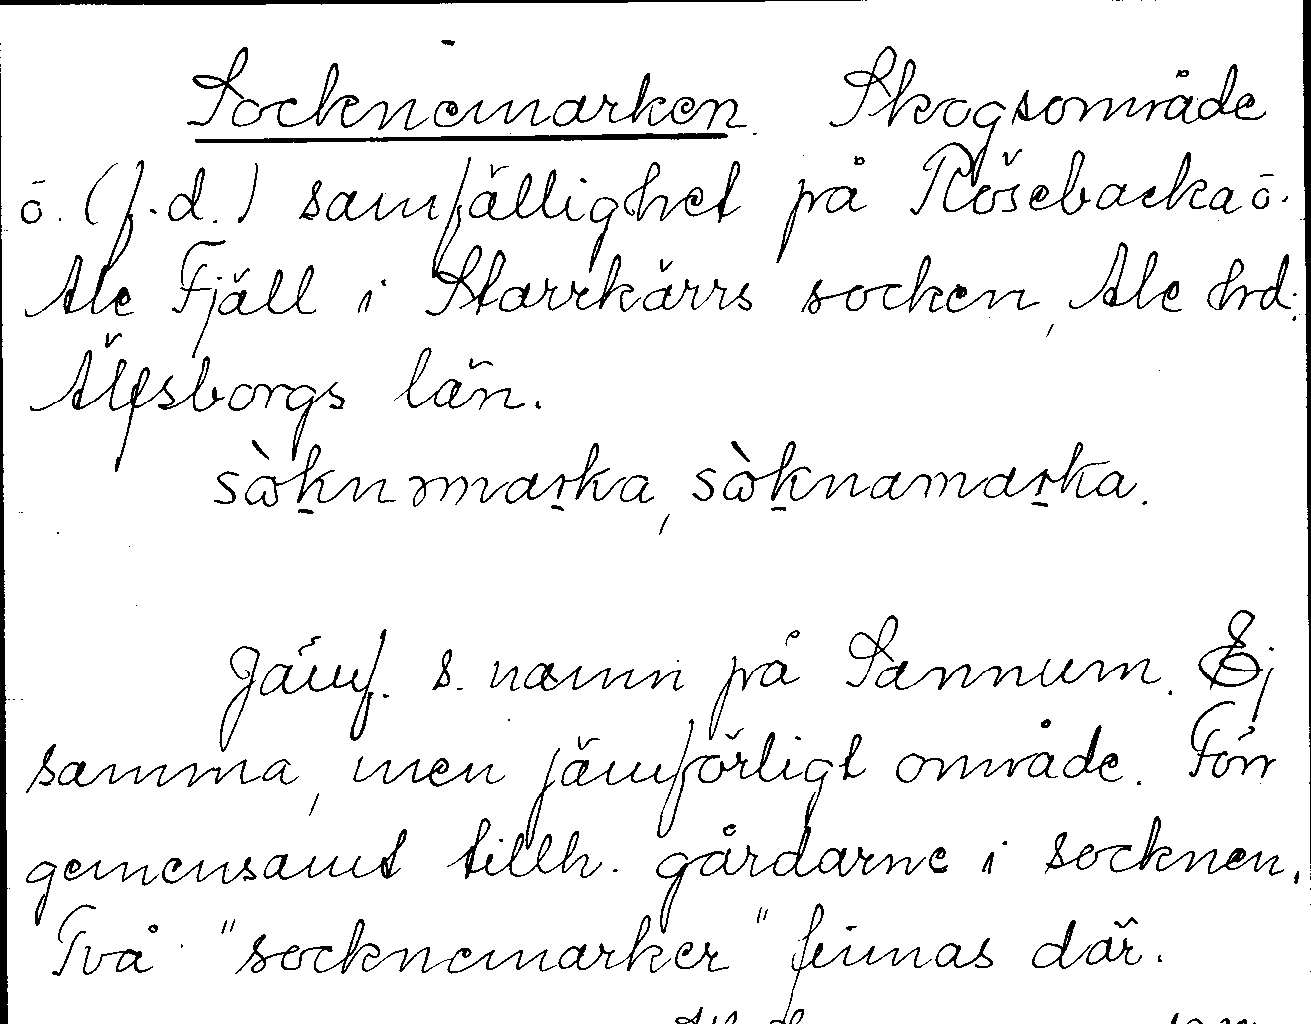 Socknemarken. Skogsområde
o. (f.d.) samfällighet på Rösebacka o.
Ale Fjäll i Starrkärrs socken, Ale hrd.
Älfsborgs län.
sòknmarka, sòknamarka.
Jämf. s. namn på Sannum. Ej
samma, men jämförligt område. Förr
gemensamt tillh. gårdarne i socknen.
Två "socknemarker" finnas där.